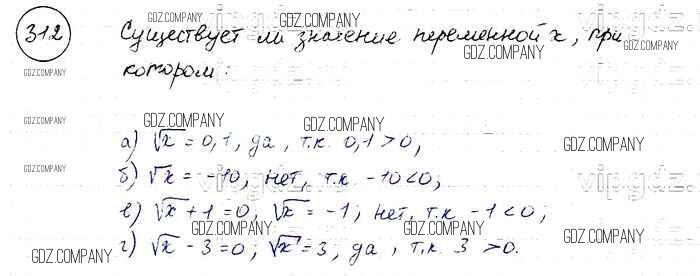 312 Существует ли значение переменной x, при
котором:
а) √x = 0,1, да, т.к. 0,1 > 0;
б) √x = -10, нет, т.к. -10 < 0;
в) √x + 1 = 0; √x = -1; нет, т.к. -1 < 0;
г) √x - 3 = 0; √x = 3, да, т.к. 3 > 0.
GDZ.COMPANY
GDZ.COMPANY
GDZ.COMPANY
GDZ.COMPANY
GDZ.COMPANY
GDZ.COMPANY
GDZ.COMPANY
GDZ.COMPANY
GDZ.COMPANY
GDZ.COMPANY
GDZ.COMPANY
GDZ.COMPANY